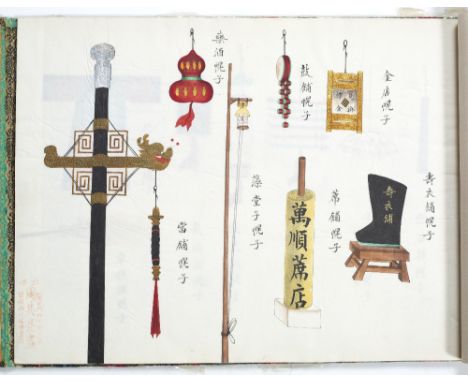 金店幌子
鼓舖幌子
藥酒幌子
壽衣舖幌子
壽衣舖
蓆舖幌子
萬順蓆店
澡堂子幌子
當舖幌子